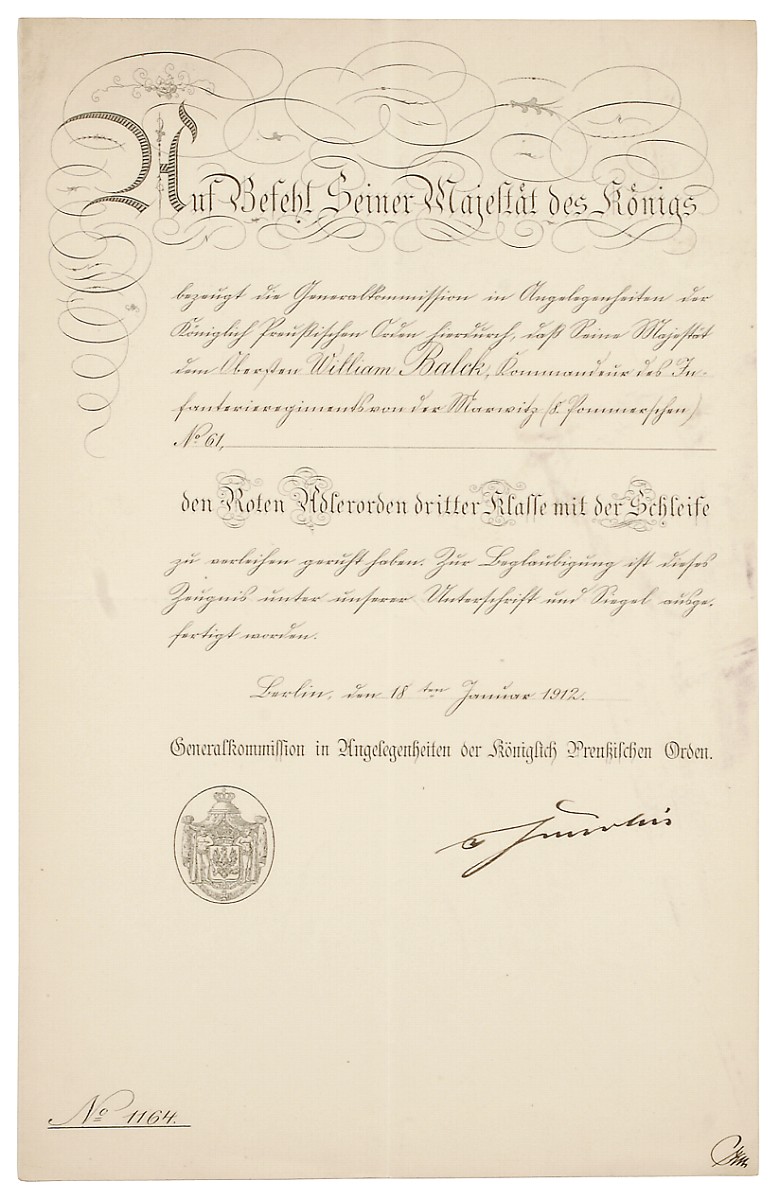 Auf Befehl Seiner Majestät des Königs
bezeugt die Generalkommission in Angelegenheiten der
Königlich Preußischen Orden hierdurch, daß Seine Majestät
dem Obersten William Balck, Kommandeur des In-
fanterieregiments von der Marwitz (8. Pommerschen)
No 61,
den Roten Adlerorden dritter Klasse mit der Schleife
zu verleihen geruht haben. Zur Beglaubigung ist dieses
Zeugnis unter unserer Unterschrift und Siegel ausge-
fertigt worden.
Berlin, den 18ten Januar 1912.
Generalkommission in Angelegenheiten der Königlich Preußischen Orden.
No 1164.